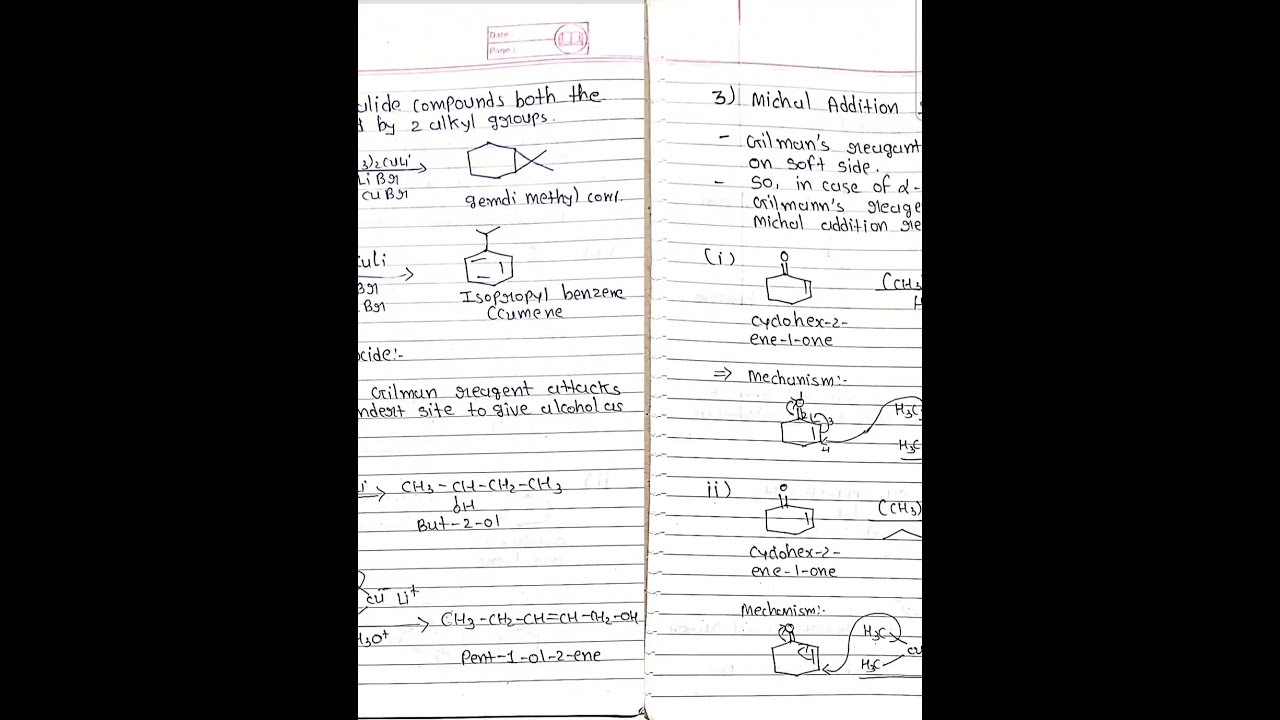 Date :
Page :
alide compounds both the
d by 2 alkyl groups.
3)2CuLi
LiBr
CuBr
gemdi methyl com.
CuLi
Br
Br
Isopropyl benzene
(cumene
oxide:-
Gilman reagent attacks
nderd site to give alcohol as
CH3 - CH-CH2-CH3
OH
But-2-ol
Cu Li+
H3O+
CH3-CH2-CH=CH-CH2-OH
Pent-1-ol-2-ene
3) Michal Addition
- Gilman's reagant
on soft side.
- So, in case of α-
Gilmann's reage
michal addition re
(i)
O
(CH3
H
cyclohex-2-
ene-1-one
⇒ Mechanism:-
2
3
4
H3C
H3C
ii)
O
(CH3)
cyclohex-2-
ene-1-one
Mechanism:-
O
H3C
Cu
H3C